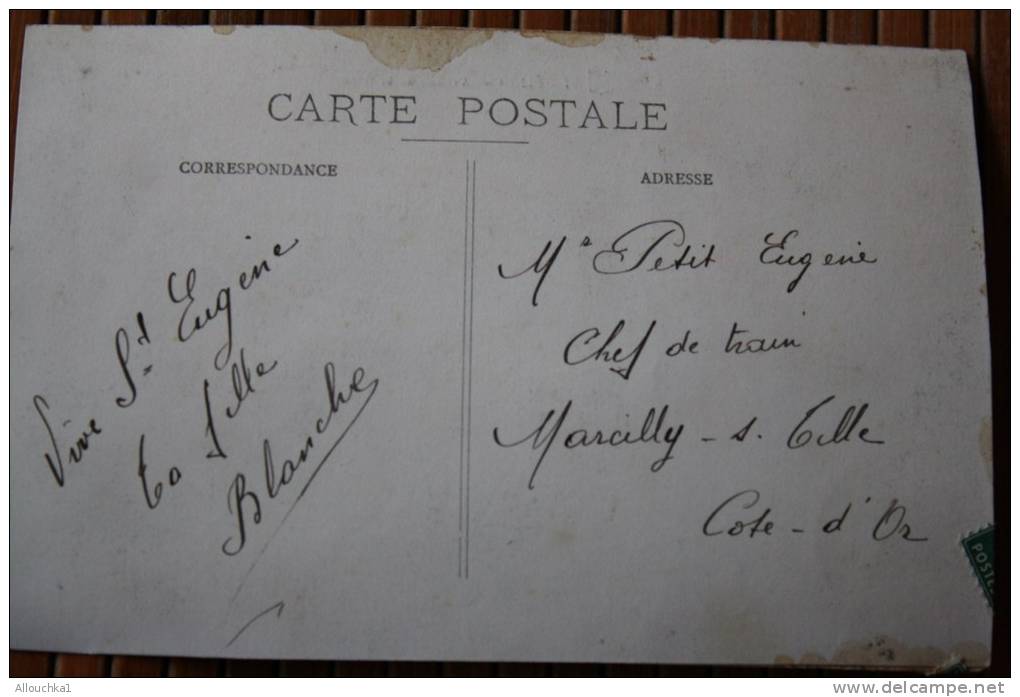 CARTE POSTALE
CORRESPONDANCE
Vive St Eugène
Ta fille
Blanche
ADRESSE
Mr Petit Eugène
Chef de train
Marcilly - s. Tille
Cote - d'Or
POSTE
Allouchka1
http://www.delcampe.net